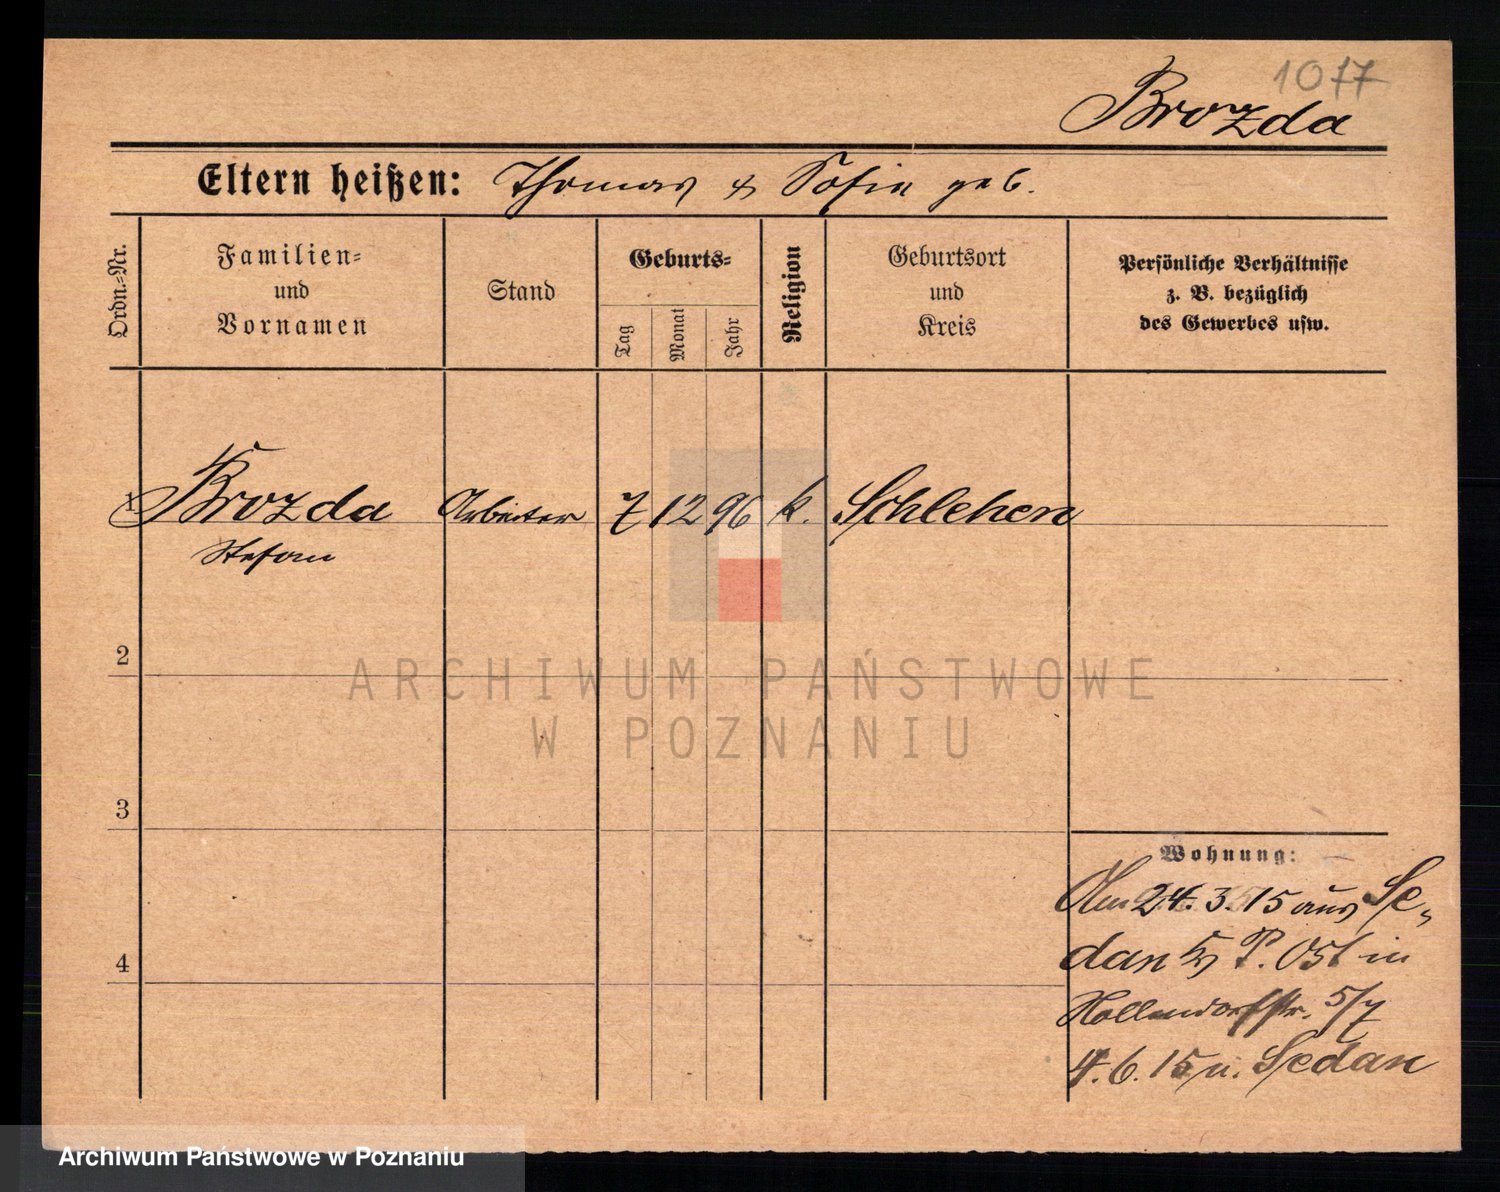 1077
Brozda
Eltern heißen: Thomas & Sofie geb.
Ordn.=Nr.
Familien=
und
Vornamen
Stand
Geburts=
Tag
Monat
Jahr
Religion
Geburtsort
und
Kreis
Persönliche Verhältnisse
z. B. bezüglich
des Gewerbes usw.
1 Brozda Arbeiter 7 12 96 k. Schlehen
Stefan
2
ARCHIWUM PAŃSTWOWE
W POZNANIU
3
Wohnung:
24.3.15 aus Se-
4
dan P. Ost in
Hollendorffstr. 5/7
4.6.15 n. Sedan
Archiwum Państwowe w Poznaniu